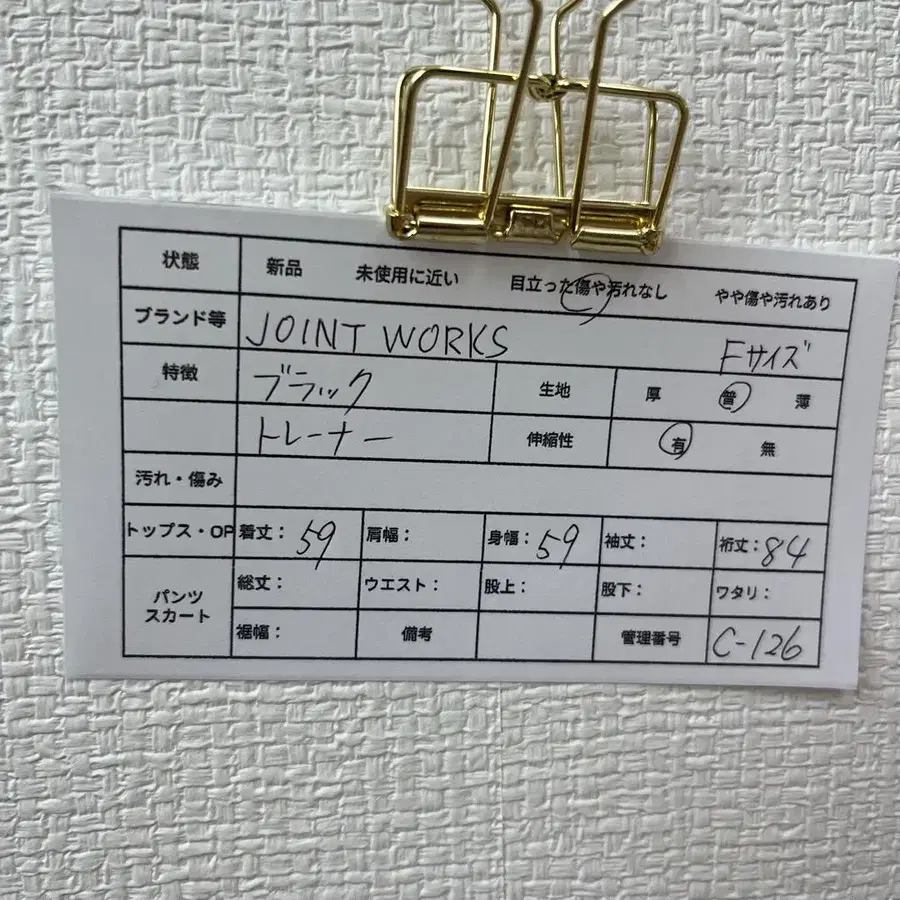 状態 新品 未使用に近い 目立った傷や汚れなし やや傷や汚れあり
ブランド等 JOINT WORKS Fサイズ
特徴 ブラック 生地 厚 普 薄
トレーナー 伸縮性 有 無
汚れ・傷み
トップス・OP 着丈： 59 肩幅： 身幅： 59 袖丈： 裄丈： 84
パンツ スカート 総丈： ウエスト： 股上： 股下： ワタリ：
裾幅： 備考 管理番号 C-126